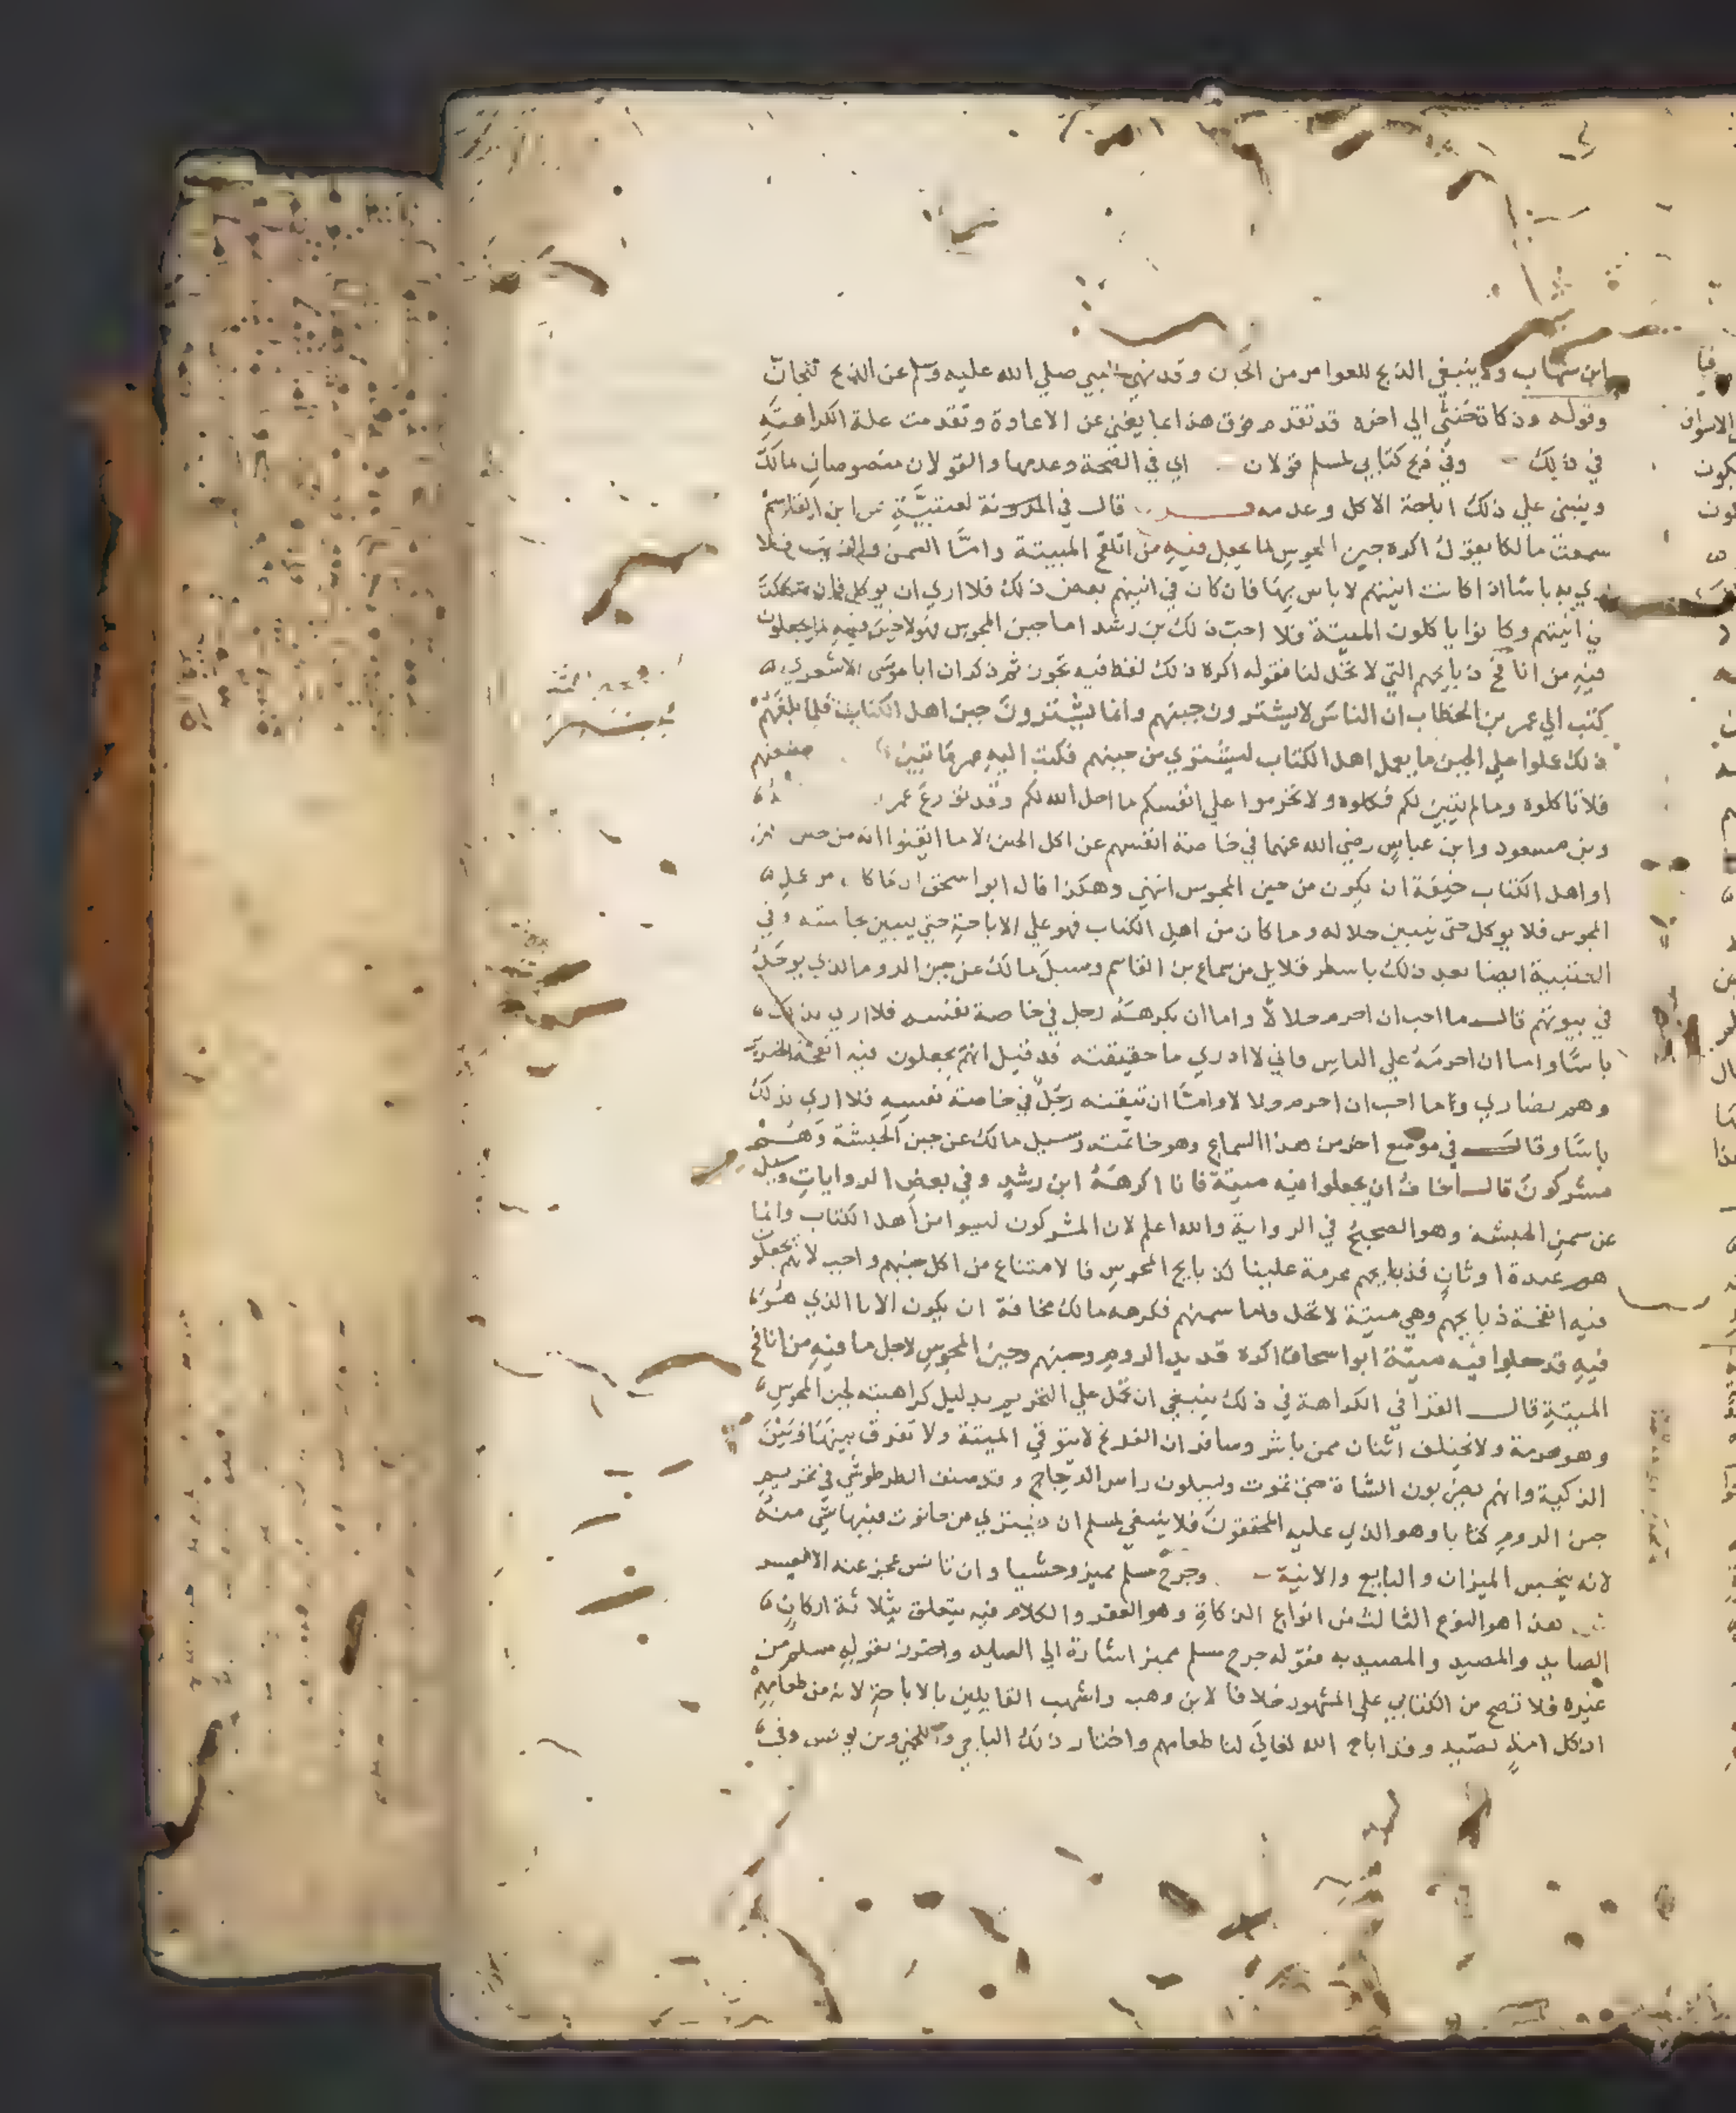 ابن شهاب ولا ينبغي الذبح للعوامر من الجان وقد نهي النبي صلي الله عليه وسلم عن الذبح للجان
وقوله وذكاة خنثي الي اخره قد تقدم فرق هذا بما يغني عن الاعادة وتقدمت علة الكراهة
في ذلك وفي ذبح كتابي لمسلم قولان اي في الصحة وعدمها والقولان منصوصان لمالك
وينبني علي ذلك اباحة الاكل وعدمه قال في المدونة لعتبية عن ابن القاسم
سمعت مالكا يقول اكره جبن المجوس لما يجعل فيه من انافح الميتة واما السمن والزيت فلا
اري به باسا اذا كانت انيتهم لا باس بها فان كان في انيتهم بعض ذلك فلا اري ان يوكل فان شككت
في انيتهم وكانوا ياكلون الميتة فلا احب ذلك بن رشد اما جبن المجوس فهو لا خير فيه لما يجعلون
فيه من انافح ذبايحهم التي لا تحل لنا فقوله اكره ذلك لفظ فيه تجوز ثم ذكر ان ابا موسي الاشعري
كتب الي عمر بن الخطاب ان الناس لا يشترون جبنهم وانما يشترون جبن اهل الكتاب فلما بلغهم
ذلك عملوا علي الجبن ما يعمل اهل الكتاب ليشتري من جبنهم فكتب اليه عمر ما تبين صنعهم
فلا تاكلوه وما لم يتبين لكم فكلوه ولا تحرموا علي انفسكم ما احل الله لكم وقد تورع عمر
وبن مسعود وابن عباس رضي الله عنهما في خاصة انفسهم عن اكل الجبن الا ما ايقنوا انه من جبن
او اهل الكتاب خيفة ان يكون من جبن المجوس انتهي وهكذا قال ابو اسحق ان ما كان من عمل
المجوس فلا يوكل حتي يتبين حلاله وما كان من اهل الكتاب فهو علي الاباحة حتي يتبين نجاسته وفي
العتبية ايضا بعد ذلك باسطر قلايل من سماع بن القاسم وسيل مالك عن جبن الروم الذي يوخذ
في بيوتهم قال ما احب ان احرم حلالا واما ان يكرهه رجل في خاصة نفسه فلا اري بذلك
باسا واما ان احرمه علي الناس فاني لا ادري ما حقيقته قد قيل انهم يجعلون فيه انفحة الخنزير
وهم نصاري وما احب ان احرم حلالا واما ان يتيقنه رجل في خاصة نفسه فلا اري بذلك
باسا وقال في موضع اخر من هذا السماع وهو خاتمته وسيل مالك عن جبن الحبشة وهم
مشركون قال اخاف ان يجعلوا فيه ميتة فانا اكرهه ابن رشد وفي بعض الروايات وسيل
عن سمن الحبشة وهو الصحيح في الرواية والله اعلم لان المشركون ليسوا من اهل الكتاب وانما
هم عبدة اوثان فذبايحهم محرمة علينا كذبايح المجوس فالامتناع من اكل جبنهم واجب لانهم يجعلون
فيه انفحة ذبايحهم وهي ميتة لا تحل واما سمنهم فكرهه مالك مخافة ان يكون الانا الذي هو
فيه قد جعلوا فيه ميتة ابو اسحاق اكره قديد الروم وجبنهم وجبن المجوس لاجل ما فيه من انافح
الميتة قال القرافي الكراهة في ذلك ينبغي ان تحمل علي التحريم بدليل كراهيته لجبن المجوس
وهو حرمة ولا يختلف اثنان ممن باشر وسافر ان الفرنج لا يتوقي الميتة ولا تفرق بينها وبين
الذكية وانهم يضربون الشاة حتي تموت ويسلون راس الدجاج وقد صنف الطرطوشي في تحريم
جبن الروم كتابا وهو الذي عليه المحققون فلا ينبغي لمسلم ان يشتري من حانوت فيها شي منه
لانه ينجس الميزان والبايع والانية وجرح مسلم مميز وحشيا وان تانس عجز عنه الا بعسر
هذا هو النوع الثالث من انواع الذكاة وهو العقر والكلام فيه يتعلق بثلاثة اركان
الصايد والمصيد والمصيد به فقوله جرح مسلم مميز اشارة الي الصايد واحترز بقوله مسلم من
غيره فلا تصح من الكتابي علي المشهور خلافا لابن وهب واشهب القايلين بالاباحة لانه من طعامهم
وقد اباح الله تعالي لنا طعامهم واختار ذلك الباجي واللخمي وبن يونس وفي